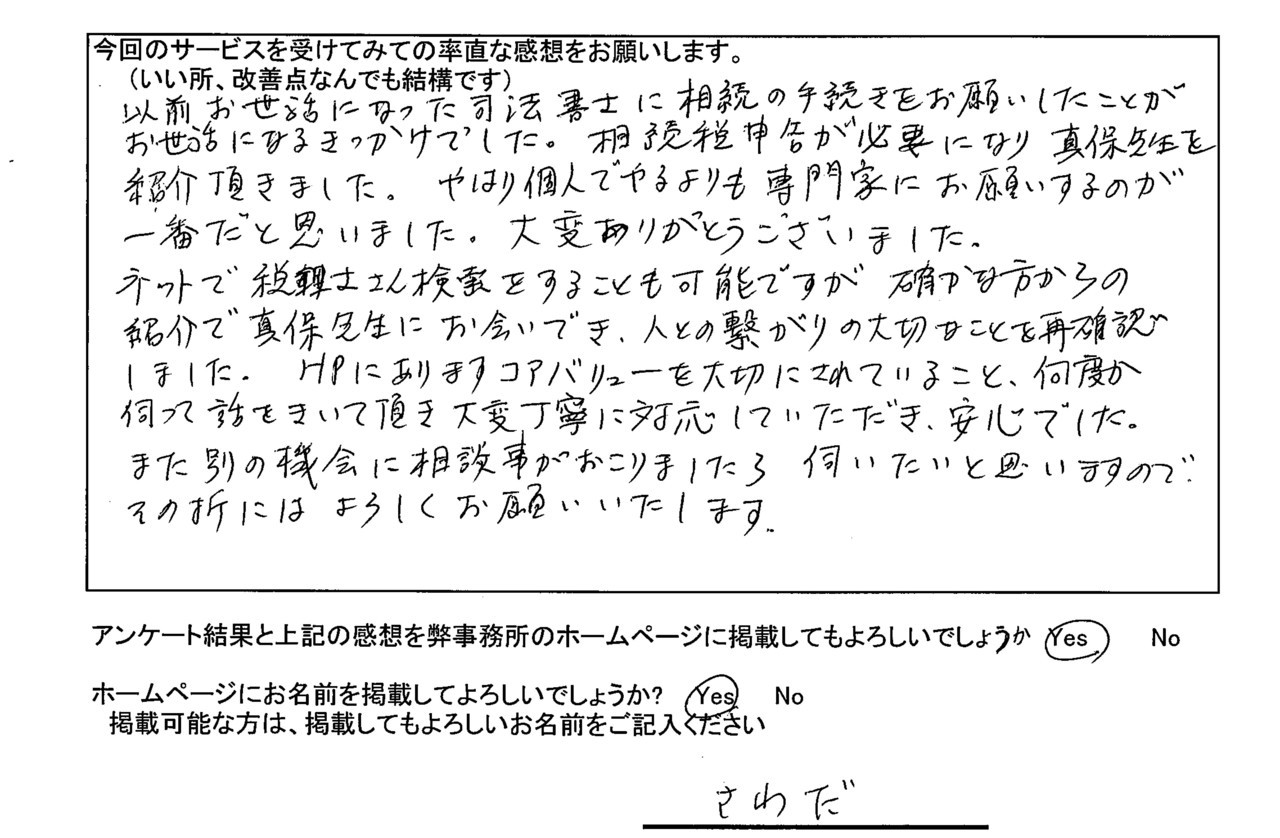 今回のサービスを受けてみての率直な感想をお願いします。
（いい所、改善点なんでも結構です）
以前お世話になった司法書士に相続の手続きをお願いしたことが
お世話になるきっかけでした。相続税申告が必要になり真保先生を
紹介頂きました。やはり個人でやるよりも専門家にお願いするのが
一番だと思いました。大変ありがとうございました。
ネットで税理士さん検索をすることも可能ですが確かな方からの
紹介で真保先生にお会いでき、人との繋がりの大切なことを再確認
しました。HPにありますコアバリューを大切にされていること、何度か
伺って話をきいて頂き大変丁寧に対応していただき、安心でした。
また別の機会に相談事がおこりましたら伺いたいと思いますので
その折にはよろしくお願いいたします。
アンケート結果と上記の感想を弊事務所のホームページに掲載してもよろしいでしょうか Yes No
ホームページにお名前を掲載してよろしいでしょうか? Yes No
掲載可能な方は、掲載してもよろしいお名前をご記入ください
さわだ